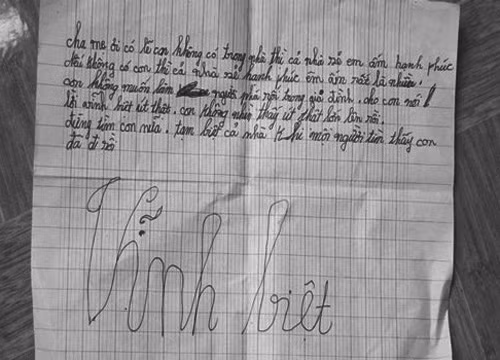 cha mẹ ơi có lẽ con không có trong nhà thì cả nhà sẽ em ấm hạnh phúc
chỉ không có con thì cả nhà sẽ hạnh phúc êm ấm rất là nhiều.
con không muốn làm người phá rối trong gia đình. cho con nói
lời vĩnh biệt út thật. con không nhìn thấy út thật lớn lên rồi.
đừng tìm con nữa. tạm biệt cả nhà khi mọi người tìn thấy con
đã đi rồ
Vĩnh biệt